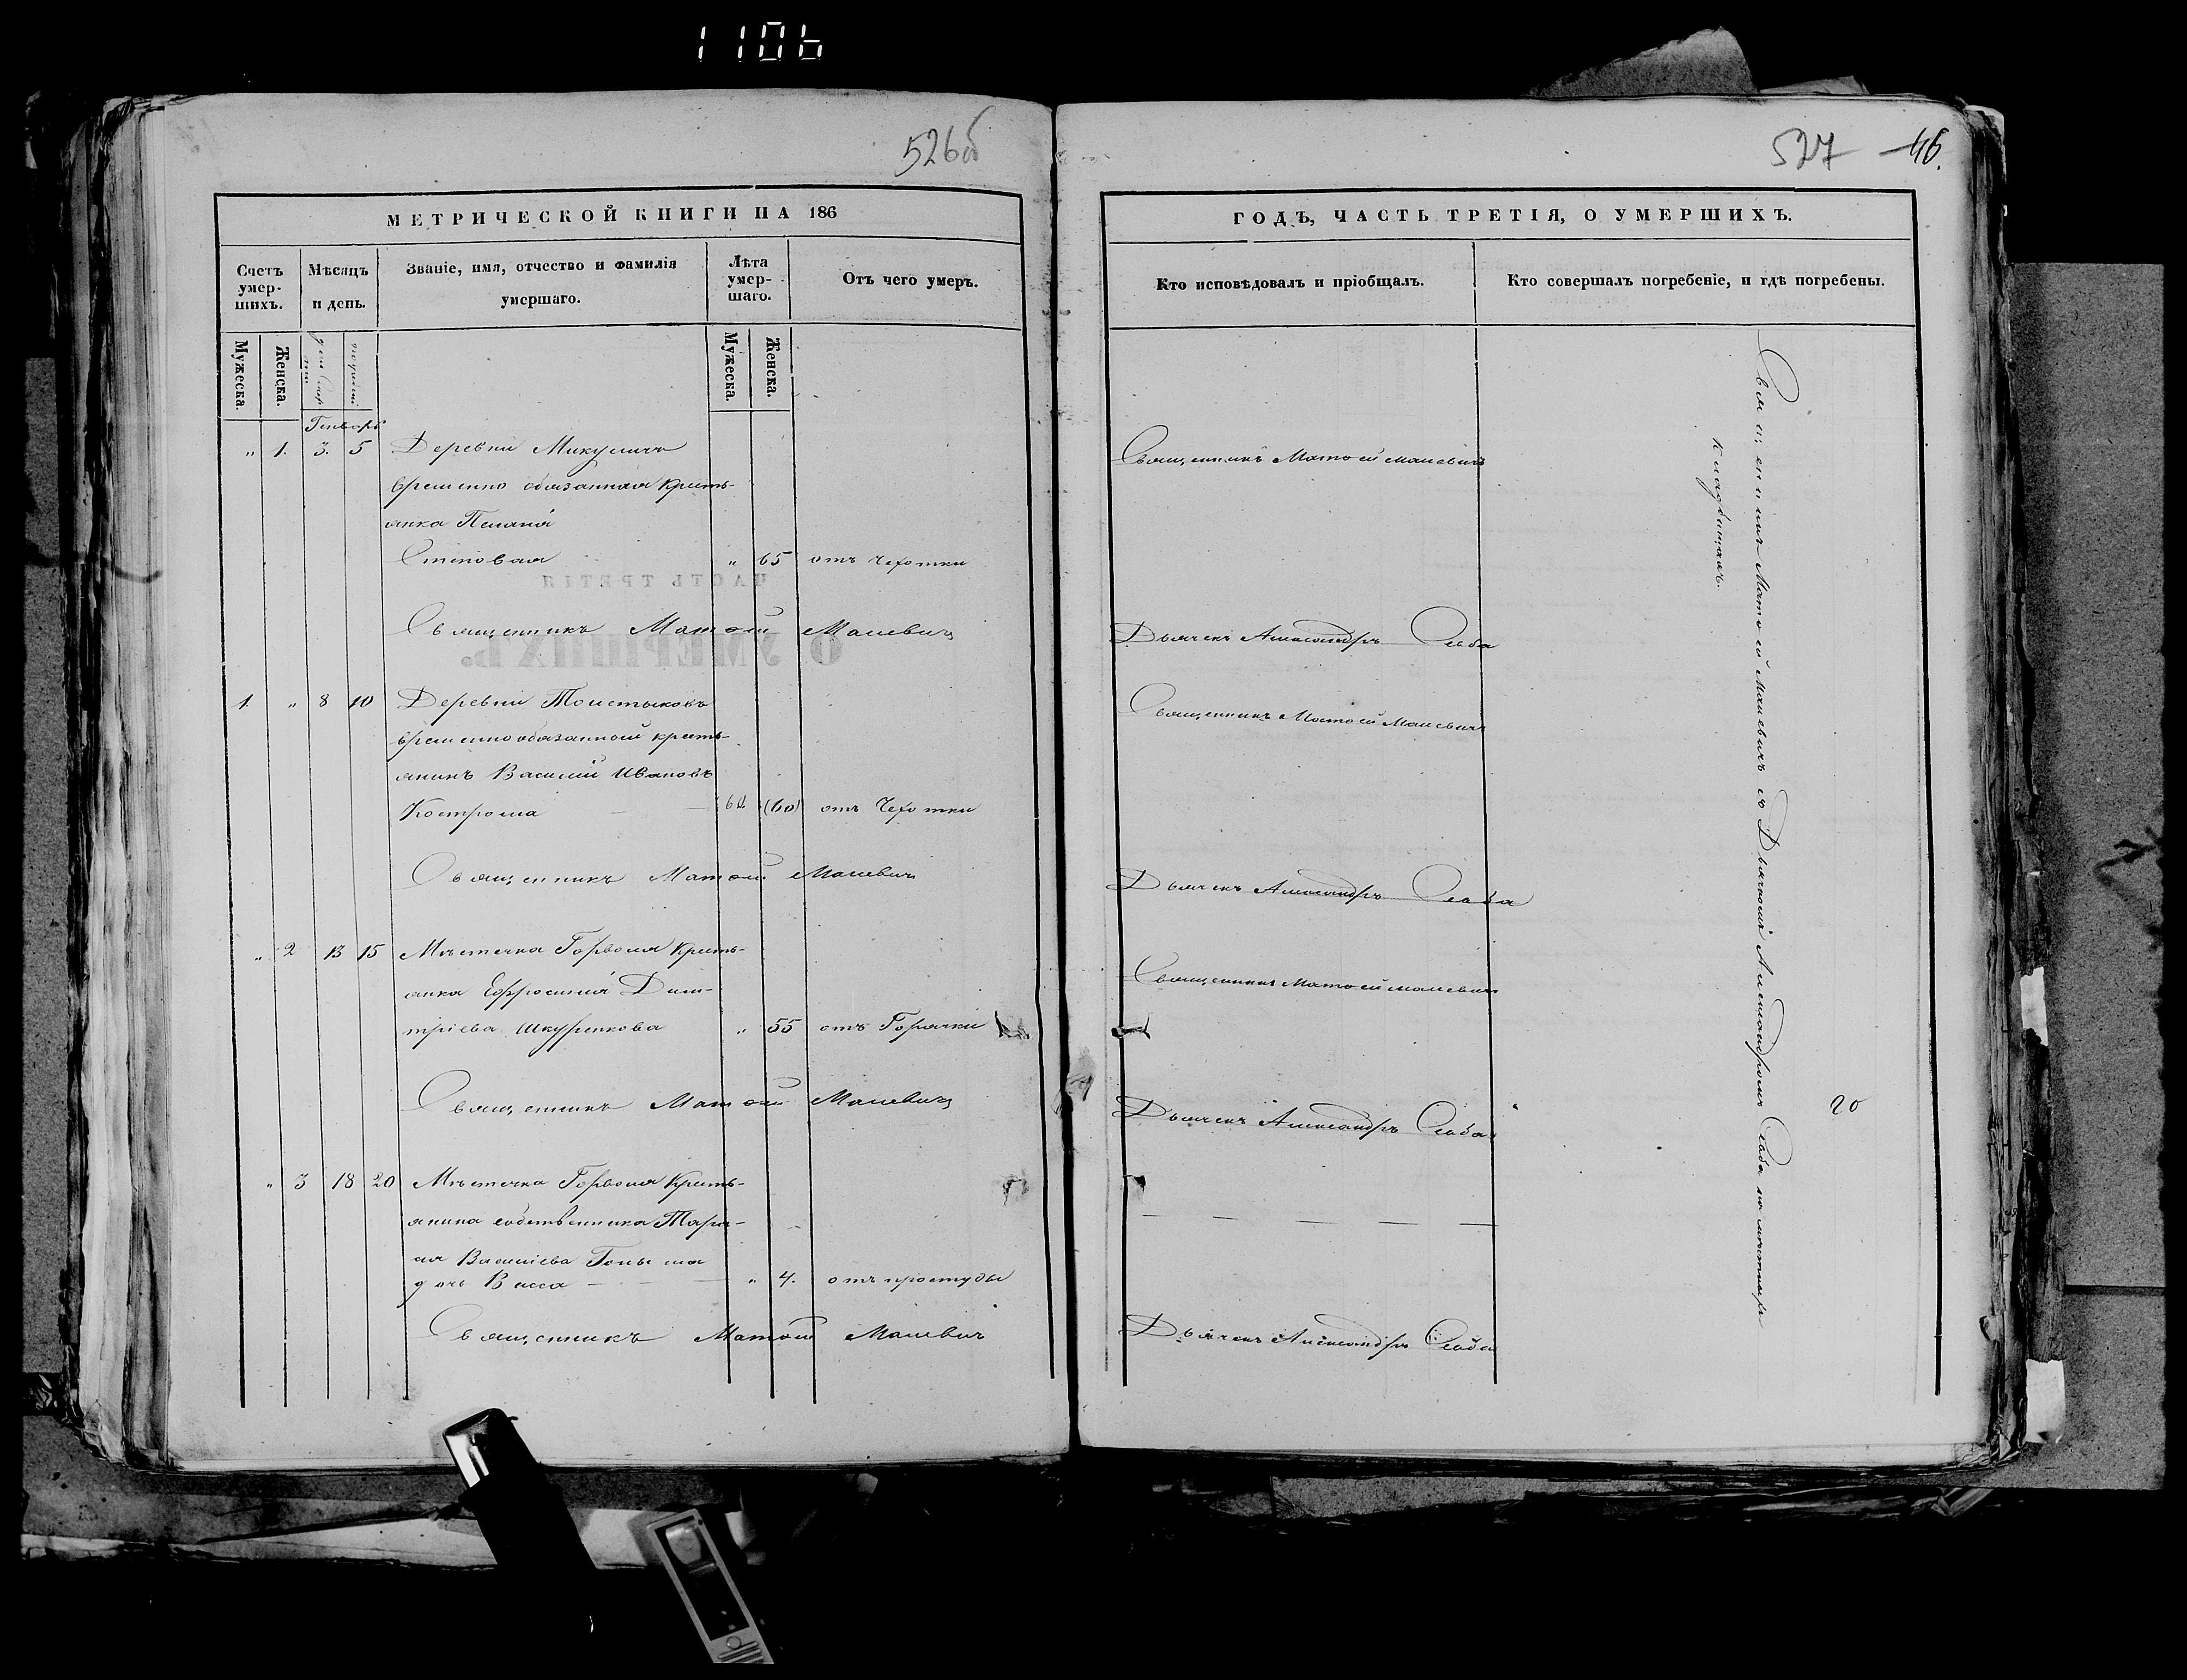 1106
526об
МЕТРИЧЕСКОЙ КНИГИ НА 186
Счетъ умер-шихъ.
Мѣсяцъ и день.
Званіе, имя, отчество и фамилія умершаго.
Лѣта умер-шаго.
Отъ чего умеръ.
Мужеска.
Женска.
Мужеска.
Женска.
Генварь
„ 1. 3. 5 Деревни Микуличъ
временно обязанная кресть-
янка
Степовая „ 65 отъ чехотки
Священникъ Матѳей Малевичъ
1 „ 8 10 Деревни Толстыковъ
временнообязанной кресть-
янинъ Василій Ивановъ
Кострома 60 (60) отъ Чехотки
Священникъ Матѳей Малевичъ
„ 2 13 15 Мѣстечка Горволя Кресть-
янка Ефросинія Дим-
тріева Шкуренкова „ 55 отъ Горячки
Священникъ Матѳей Малевичъ
„ 3 18 20 Мѣстечка Горволя Кресть-
янина собственника Тара-
ся Василіева
дочь Васса „ 4. отъ простуды
Священникъ Матѳей Малевичъ
527 46.
ГОДЪ, ЧАСТЬ ТРЕТІЯ, О УМЕРШИХЪ.
Кто исповѣдовалъ и пріобщалъ.
Кто совершалъ погребеніе, и гдѣ погребены.
Священникъ Матѳей Малевичъ
Дьячекъ Александръ Слаба
Священникъ Матѳей Малевичъ
Дьячекъ Александръ Слаба
Священникъ Матѳей Малевичъ
Дьячекъ Александръ Слаба
Дьячекъ Александръ Слаба
Священникъ Матѳей Малевичъ съ Дьячкомъ Александромъ Слаба на
кладбищахъ.
20